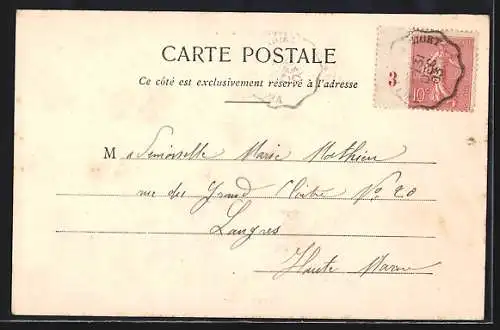 CARTE POSTALE
Ce côté est exclusivement réservé à l'adresse
3
10c
Mademoiselle Marie Mathieu
rue du Grand Cloître No 20
Langres
Haute Marne